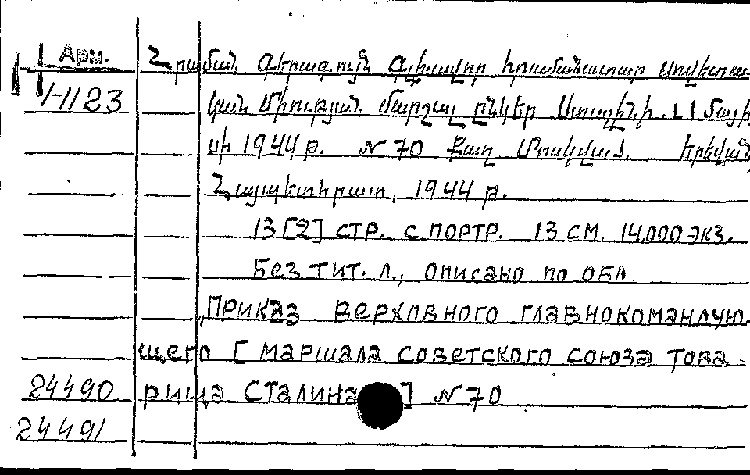 Арм. Հրաման Գերագույն Գլխավոր հրամանատար Սովետա
1-1123 կան Միության Մարշալ ընկեր Ստալինի. 1 մայի
սի 1944 թ. N 70 Քաղ. Մոսկվա. Երևան,
Հայպետհրատ, 1944 թ.
13 [2] стр. с портр. 13 см. 14.000 экз.
Без тит. л., описано по обл
Приказ верховного главнокомандую
щего [ маршала советского союза това
24490 рища Сталина ] N 70
24491